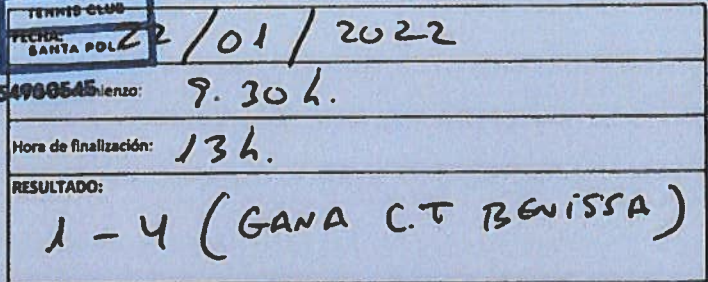 TENNIS CLUB
FECHA: 22/01/2022
SANTA POLA
9.30 h.
Hora de finalización: 13 h.
RESULTADO:
1 - 4 (GANA C.T BENISSA)